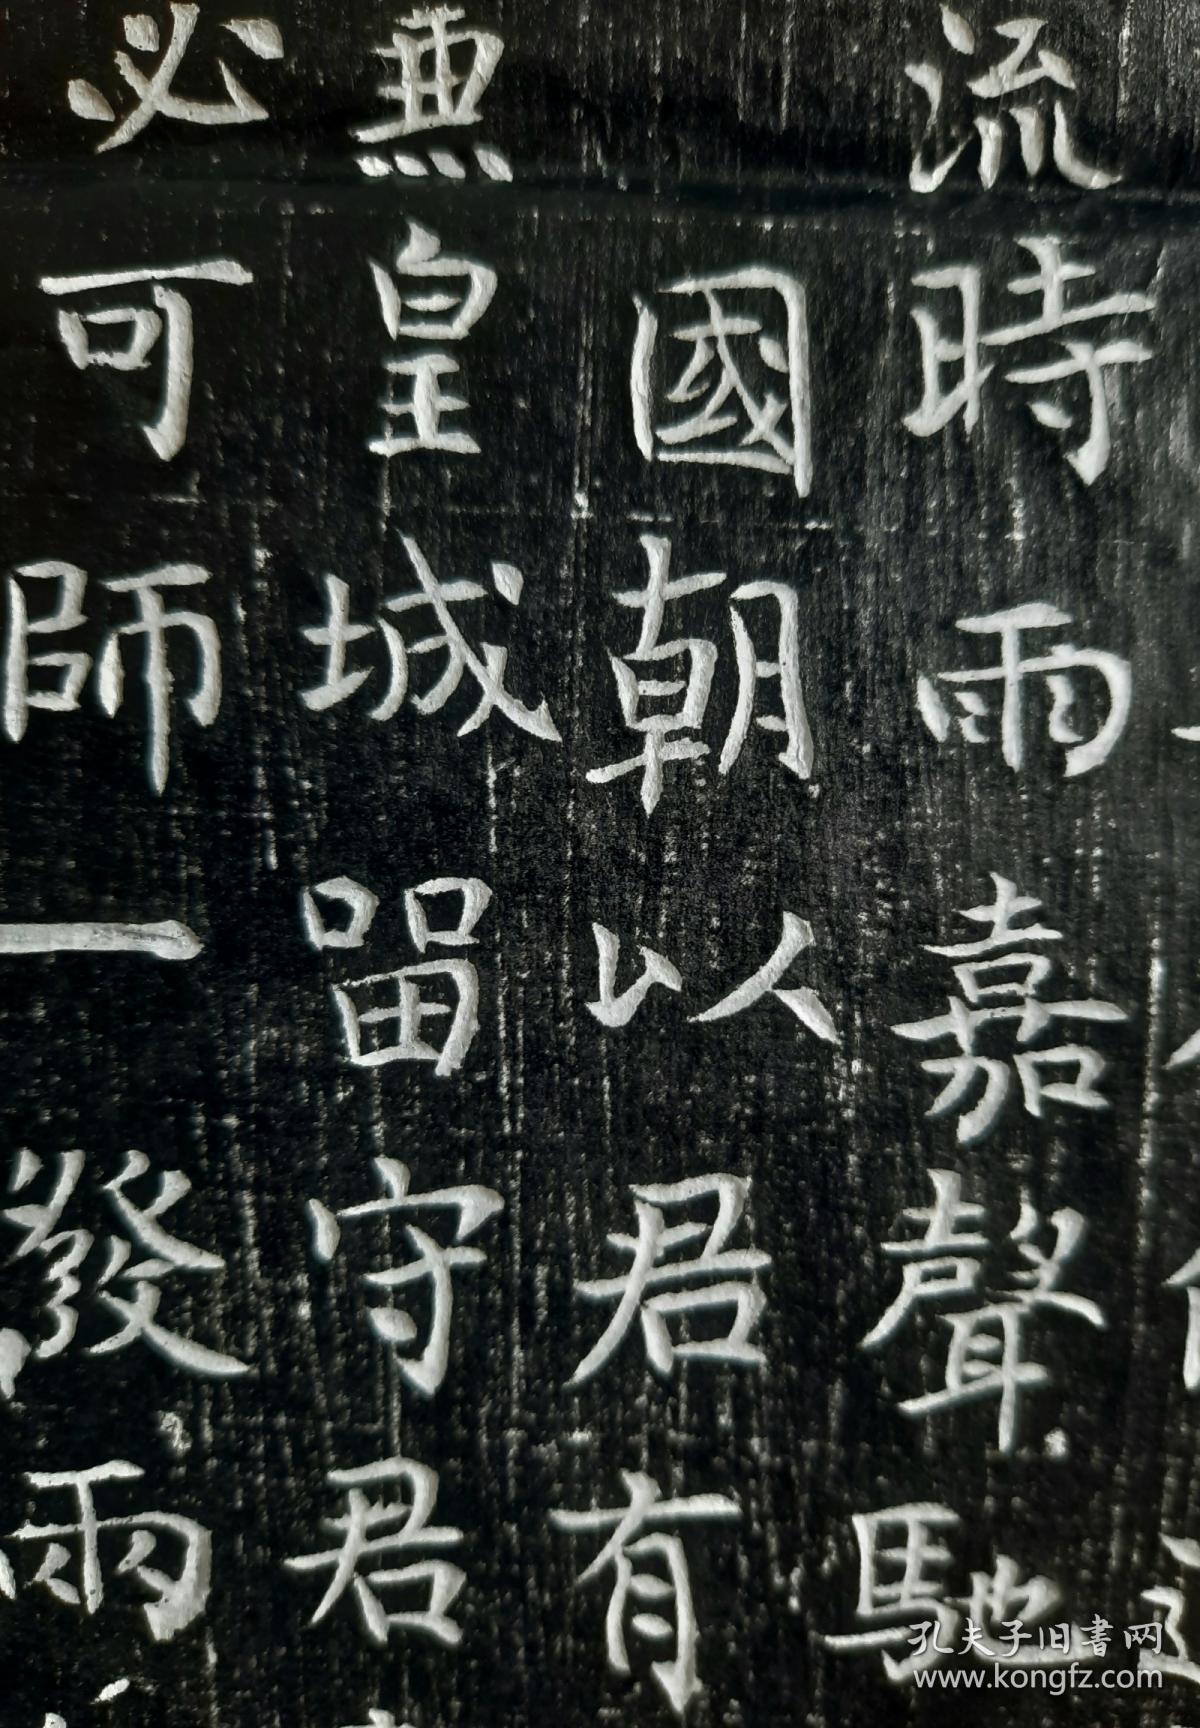 流時雨嘉聲馳
國朝以君有
兼皇城留守君
必可師一發兩
孔夫子旧書网
www.kongfz.com